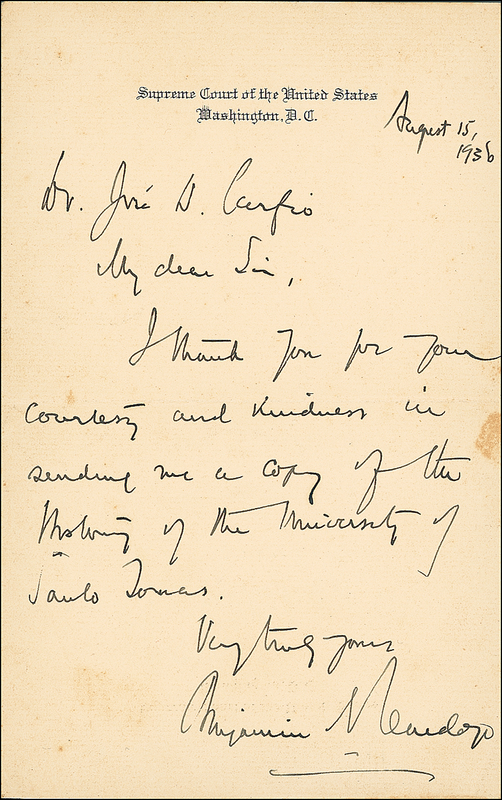 Supreme Court of the United States
Washington, D.C.
August 15,
1936
Dr. José D. 
My dear Sir,
I thank you for your
courtesy and kindness in
sending me a copy of the
History of the University of
Santo Tomas.
Very truly yours
Benjamin N Cardozo